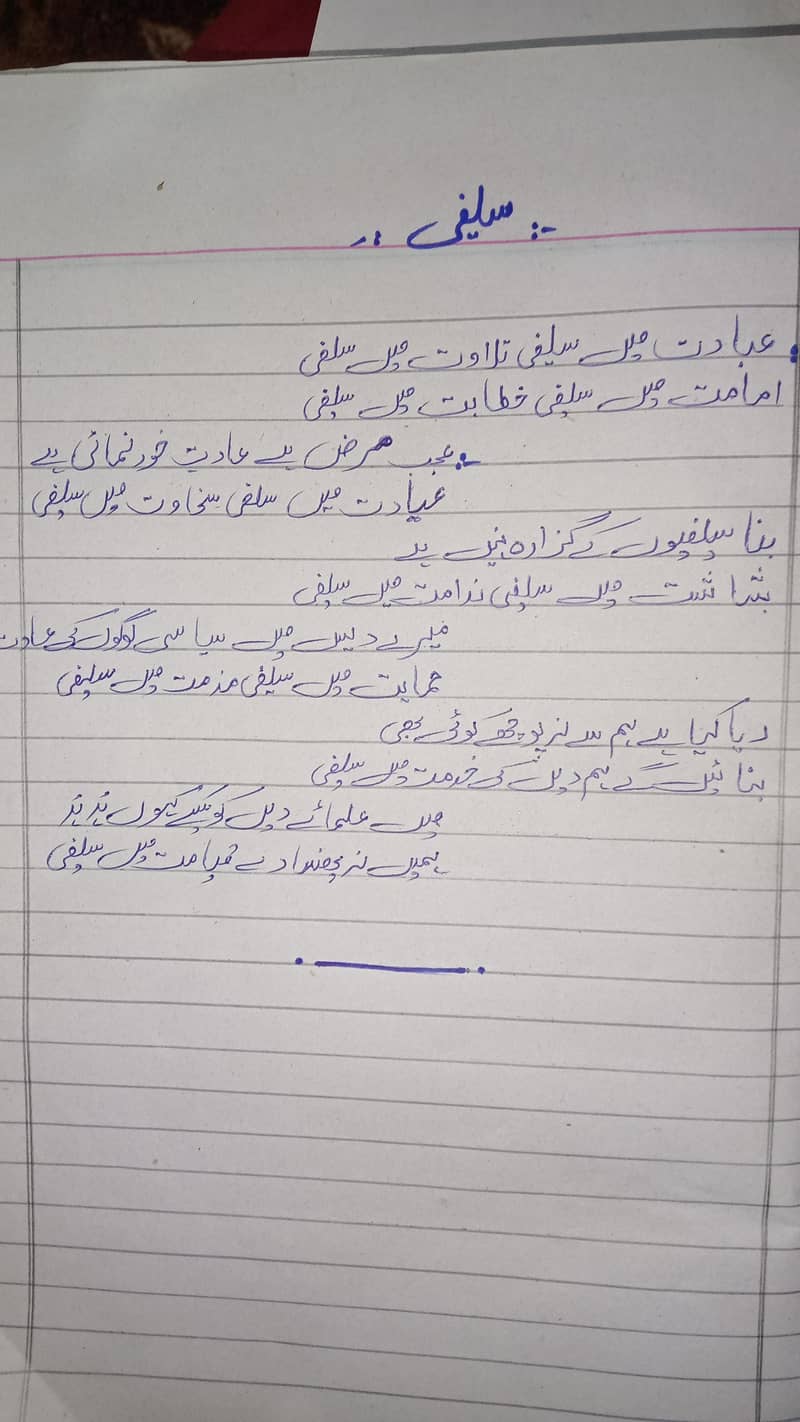 سیلفی
عبادت میں سیلفی تلاوت میں سلفی
امامت میں سلفی خطابت میں سیلفی
عجب مرض ہے عادتِ خود نمائی ہے
عیادت میں سلفی سخاوت میں سیلفی
بنا سیلفیوں کے گزارہ نہیں ہے
بشاشت میں سیلفی ندامت میں سیلفی
میرے دیس میں سیاسی لوگوں کی عادت
حمایت میں سیلفی مذمت میں سیلفی
ریا کیا ہے ہم سے نہ پوچھے کوئی بھی
بنائیں گے ہم دین کی خدمت میں سیلفی
میں علمائے دین کو کہوں
ہمیں نہ پھنسا دے قیامت میں سیلفی